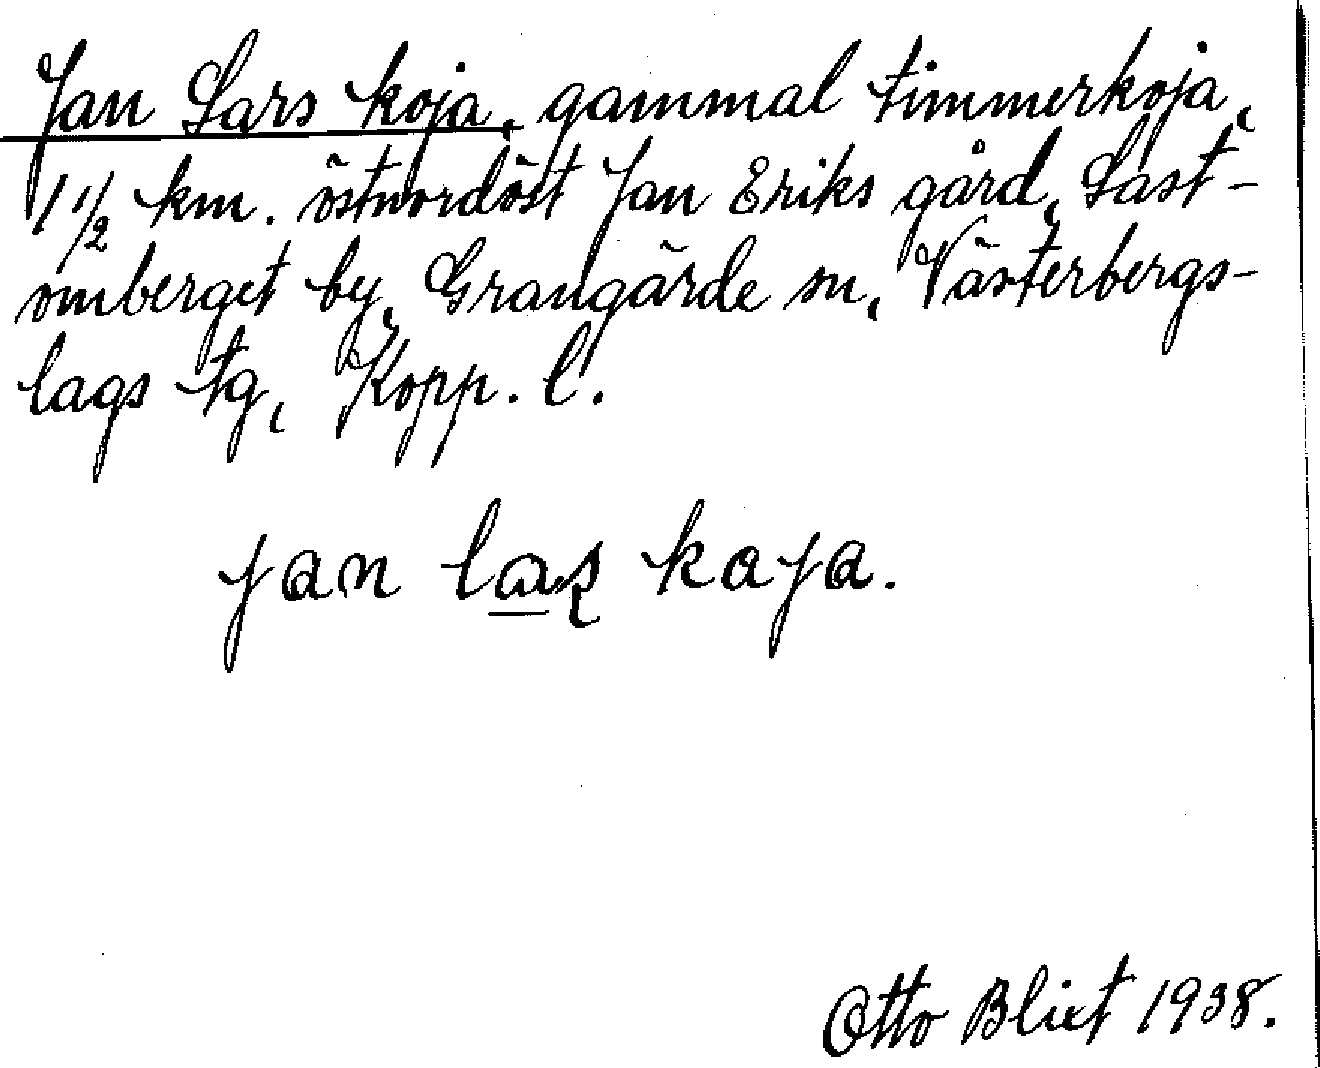 Jan Lars koja, gammal timmerkoja,
1 1/2 km. östnordöst Jan Eriks gård, Last-
omberget by, Grangärde sn, Västerbergs-
lags tg, Kopp. l.
jan laʂ koja.
Otto Blixt 1938.